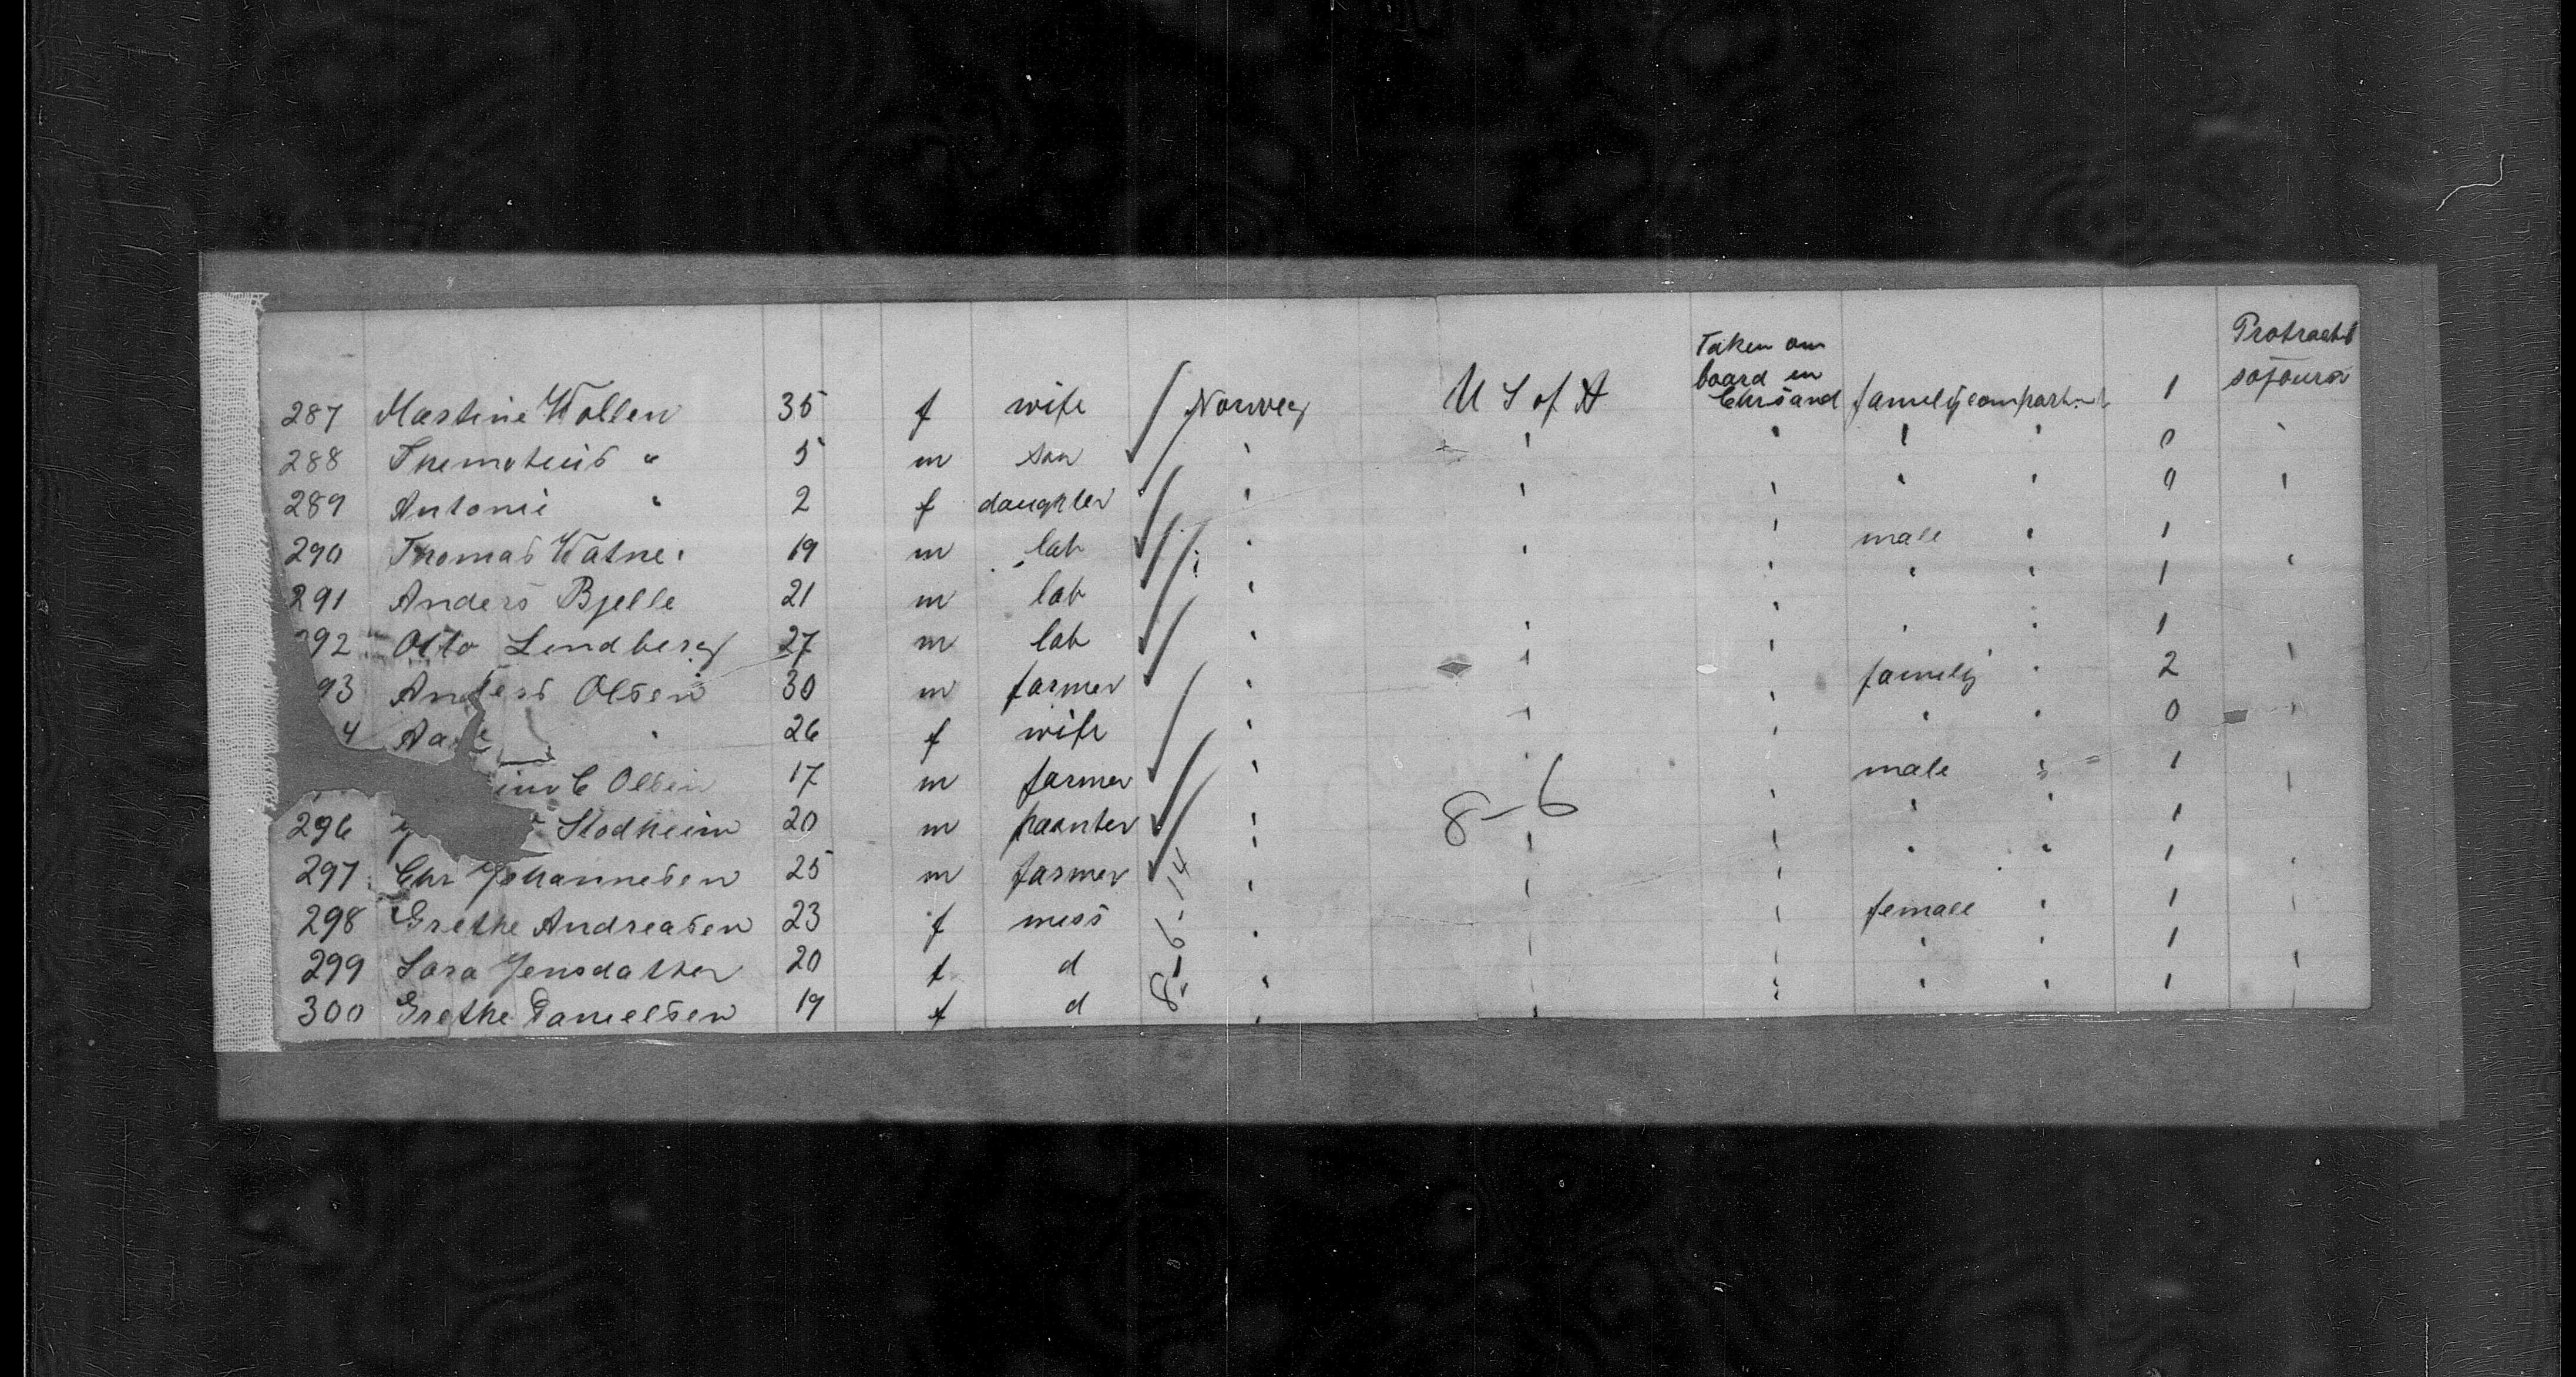 Taken om board in Chrisand
Protracted sojourn
287 Martine Wollen 35 f wife Norweg U S of A family compartm 1
288 Themoteus " 5 m son ' ' ' ' ' 0 '
289 Antonie " 2 f daughter ' ' ' ' ' 0 '
290 Thomas Watne 19 m lab ' ' ' male ' 1
291 Anders Bjelle 21 m lab ' ' ' ' 1 '
92 Otto Lendberg 27 m lab ' ' ' ' ' 1
93 Anders Olsen 30 m farmer ' ' ' family ' 2 '
4 Aa ' 26 f wife ' ' ' ' ' 0 '
C Olsen 17 m farmer ' ' male " 1 '
296 Stodheim 20 m paanter ' ' ' ' ' 1
8-6
297 Chr Johannesen 25 m farmer ' ' ' ' ' 1 '
298 Grethe Andreasen 23 f miss ' ' ' female ' 1 '
299 Sara Jensdatter 20 f d ' ' ' ' ' 1 '
300 Grethe Danielsen 19 f d ' ' ' ' ' 1 '
8-6-14